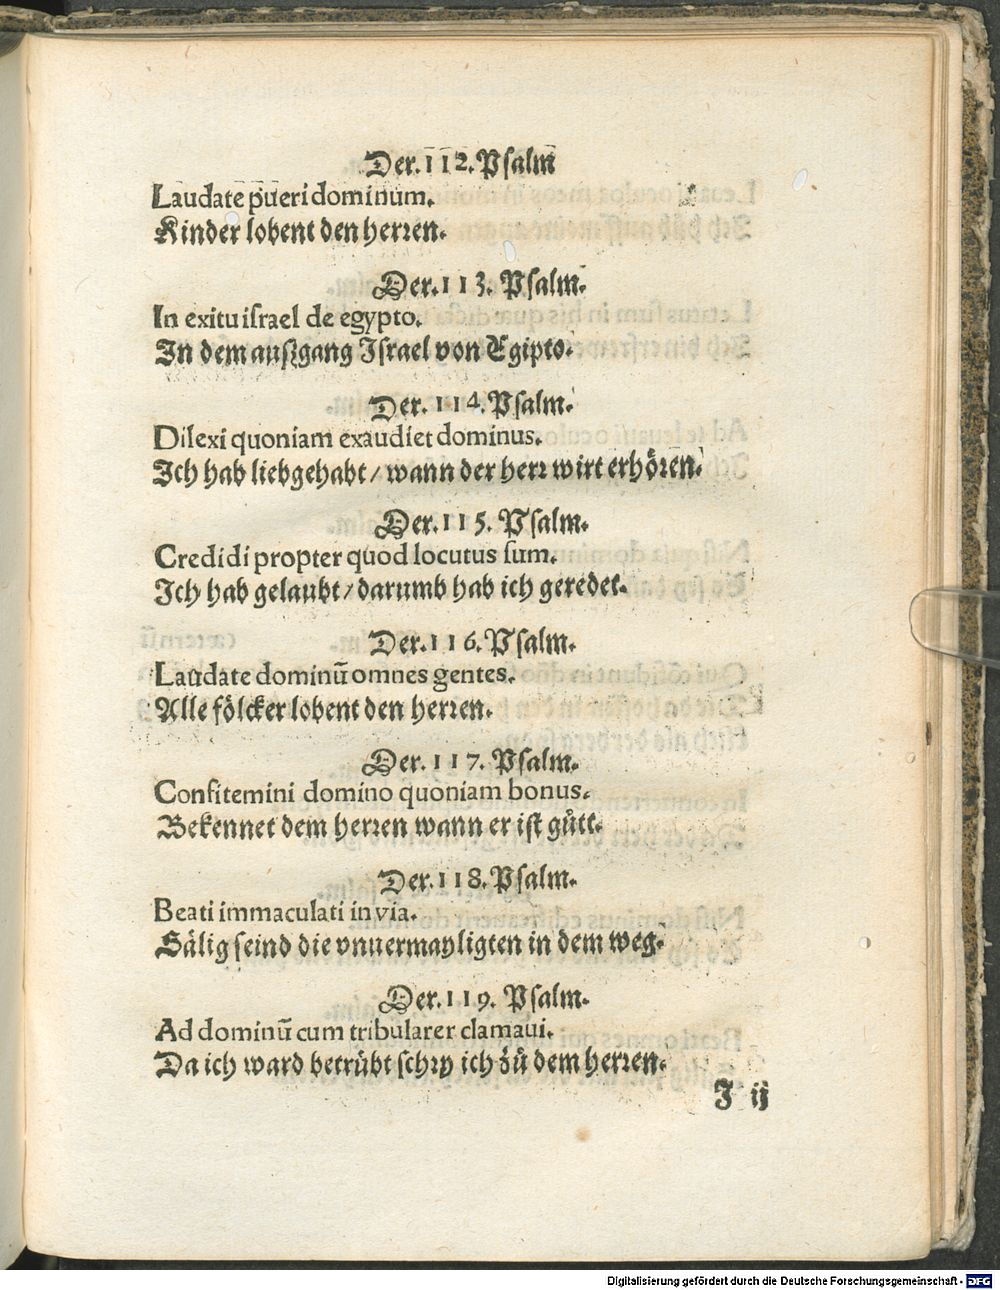 Der. 112. Psalm
Laudate pueri dominum.
Kinder lobent den herren.
Der. 113. Psalm.
In exitu iſrael de egypto.
In dem auſzgang Iſrael von Egipto.
Der. 114. Psalm.
Dilexi quoniam exaudiet dominus.
Ich hab liebgehabt / wann der herr wirt erhören.
Der. 115. Pſalm.
Credidi propter quod locutus ſum.
Ich hab gelaubt / darumb hab ich geredet.
Der. 116. Pſalm.
Laudate dominū omnes gentes.
Alle fölcker lobent den herren.
Der. 117. Pſalm.
Confitemini domino quoniam bonus.
Bekennet dem herren wann er iſt gůtt.
Der. 118. Pſalm.
Beati immaculati in via.
Sälig ſeind die vnuermayligten in dem weg.
Der. 119. Pſalm.
Ad dominū cum tribularer clamaui.
Da ich ward betrübt ſchry ich zů dem herren.
J ij
Digitalisierung gefördert durch die Deutsche Forschungsgemeinschaft - DFG